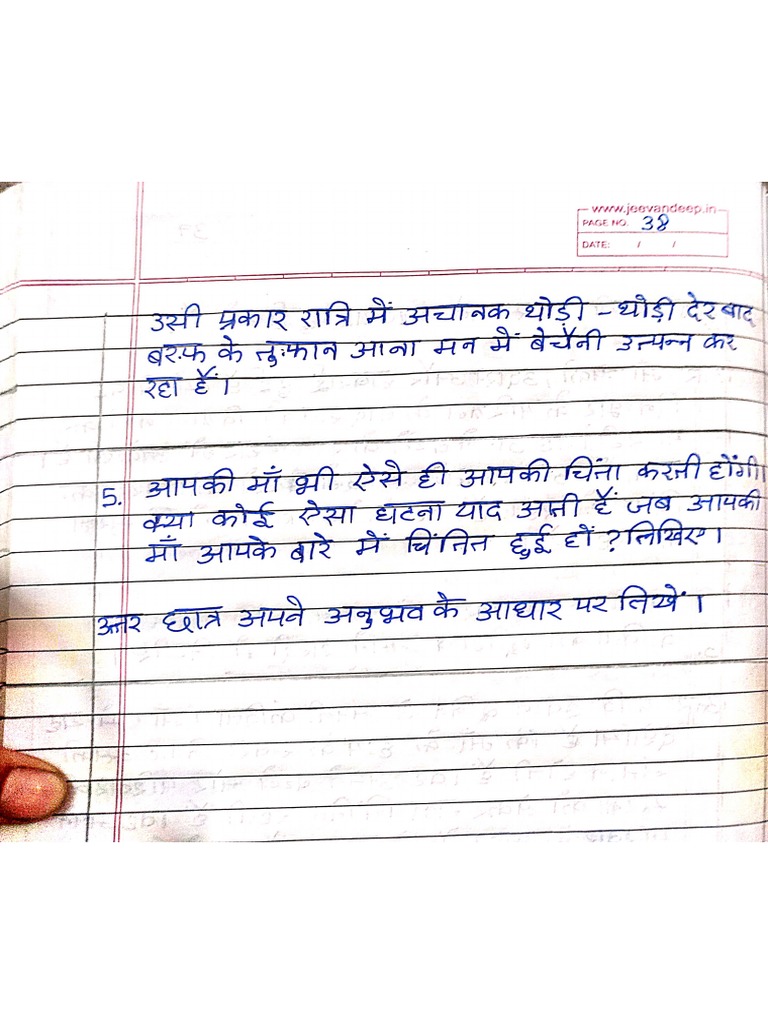 www.jeevandeep.in
PAGE NO. 38
DATE: / /
उसी प्रकार रात्रि में अचानक थोड़ी - थोड़ी देर बाद
बरफ के तुफान आना मन में बेचैनी उत्पन्न कर
रहा हैं।
5. आपकी माँ भी ऐसे ही आपकी चिंता करती होंगी।
क्या कोई ऐसा घटना याद आती हैं जब आपकी
माँ आपके बारे में चिंतित हुई हों ? लिखिए।
उत्तर छात्र अपने अनुभव के आधार पर लिखें।